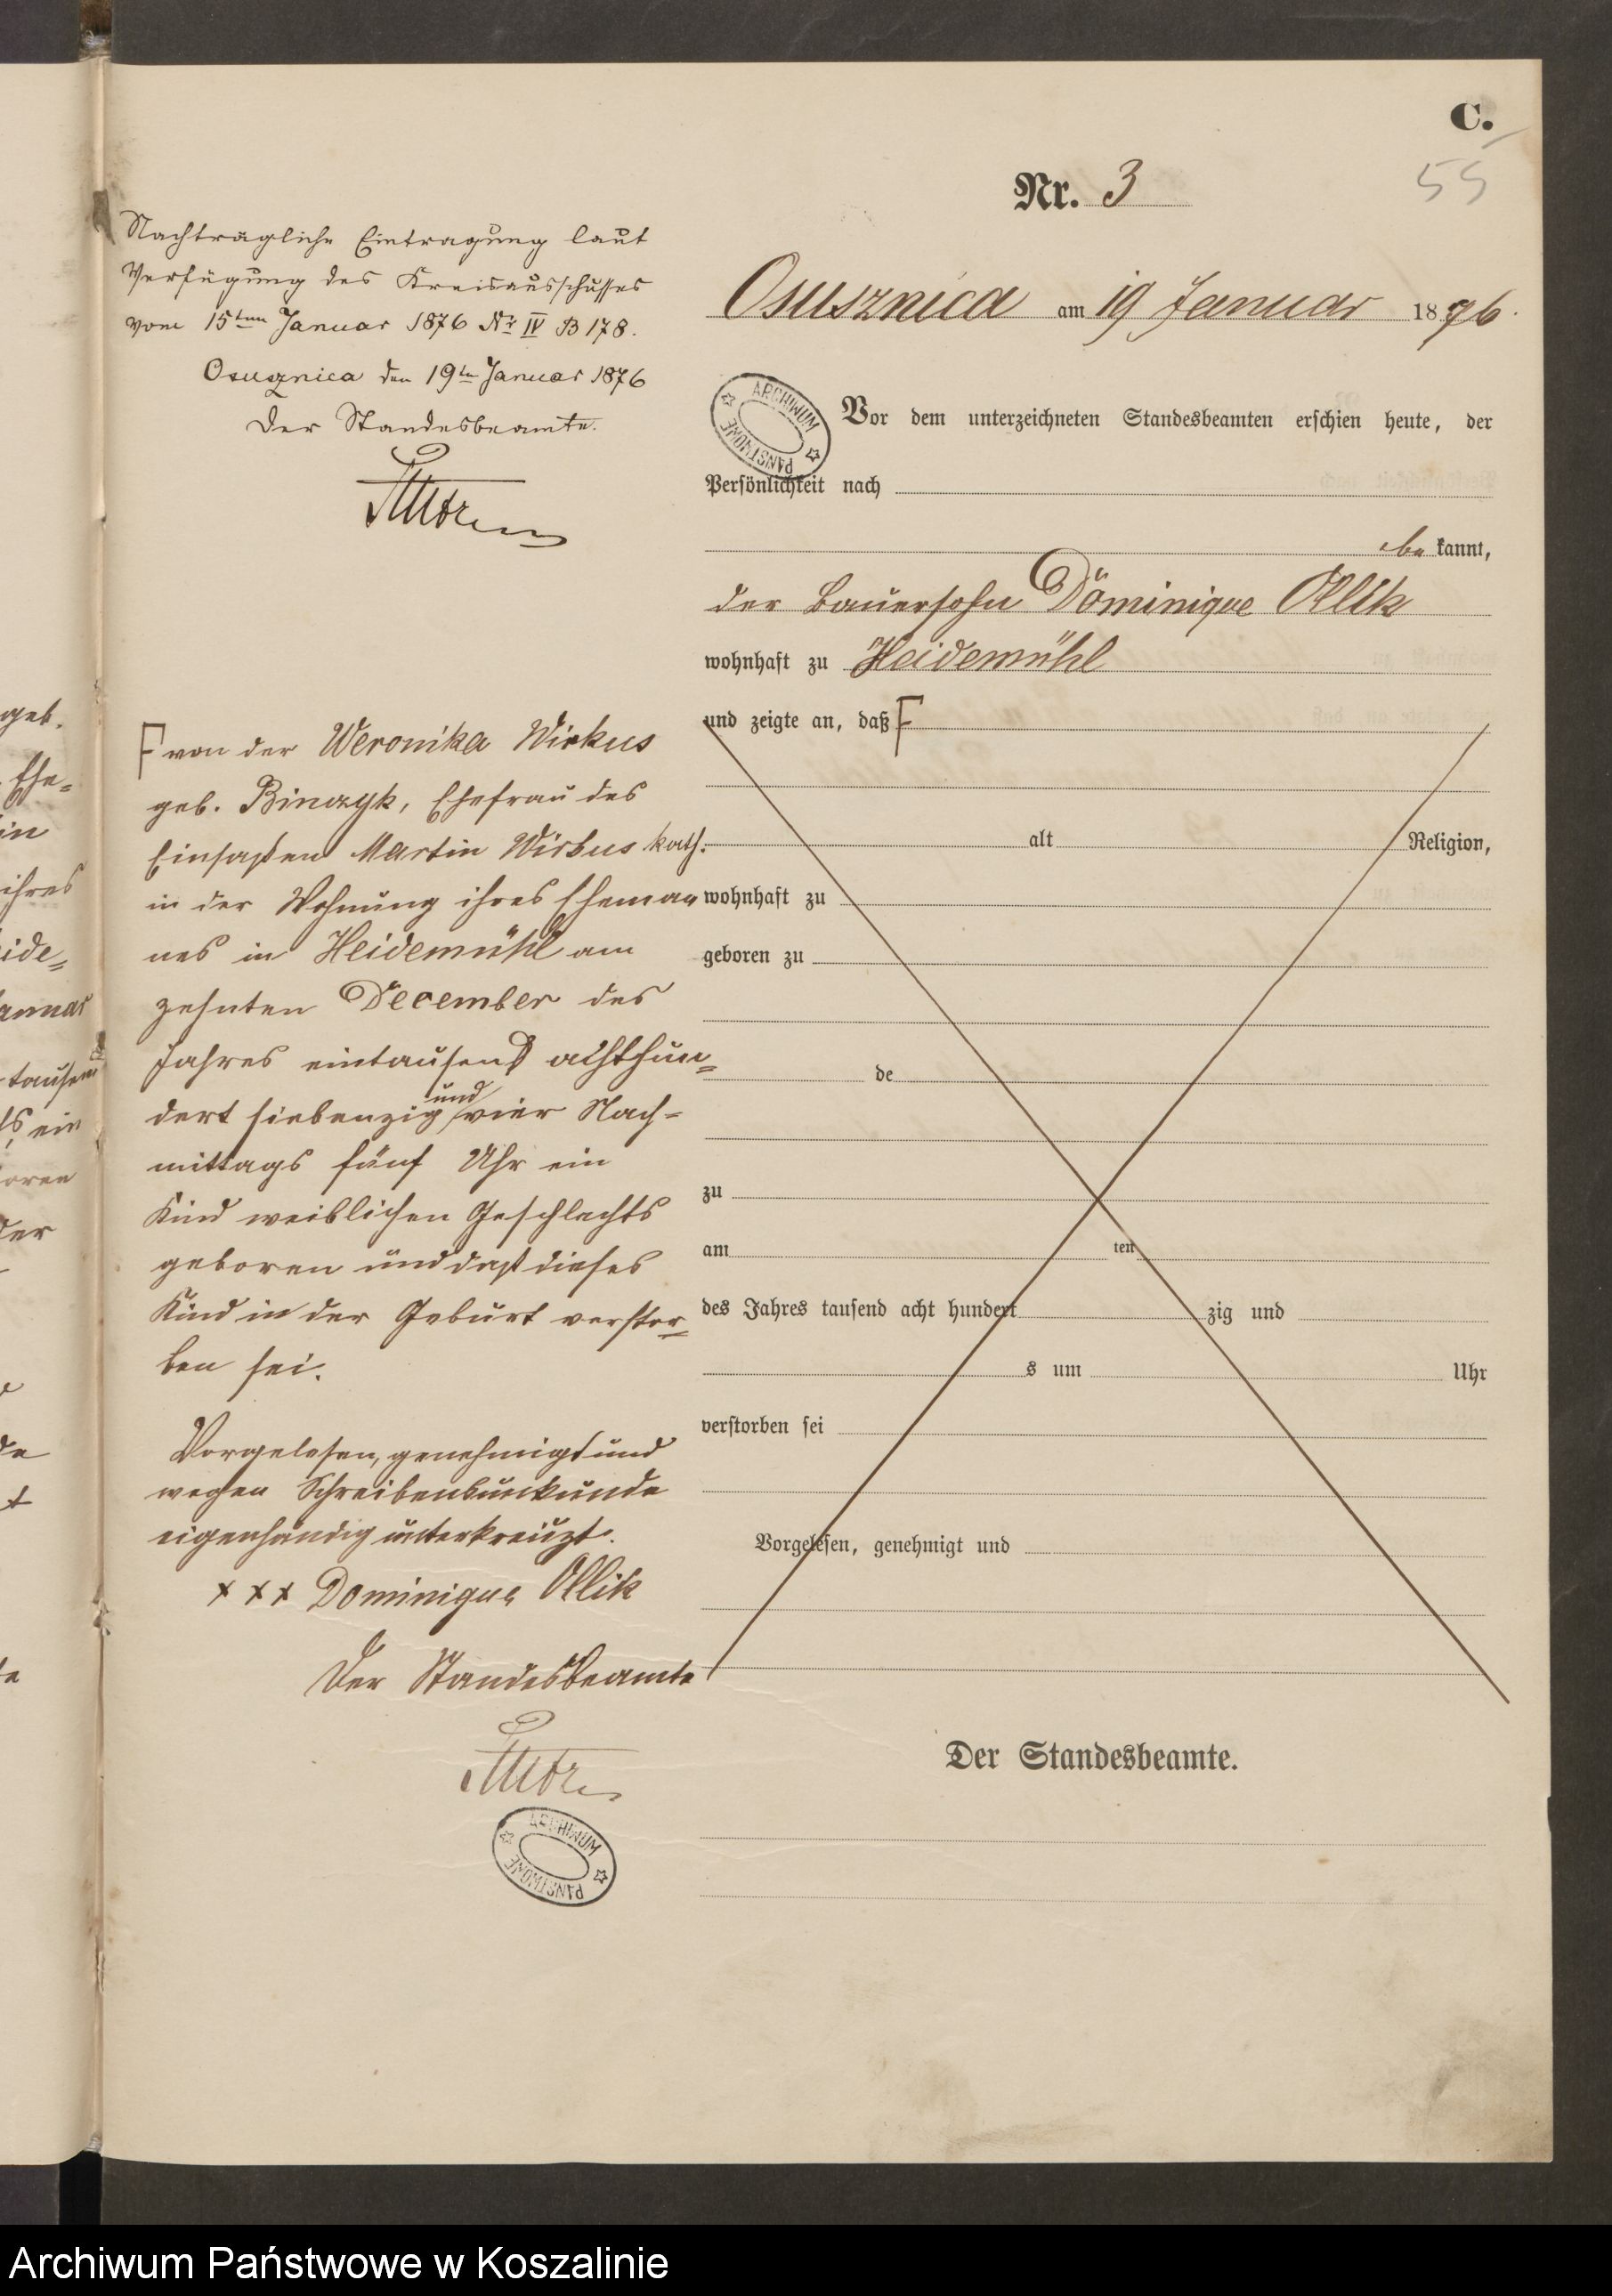 C.
55
Nr. 3
Nachträgliche Eintragung laut
Verfügung des Kreisausschusses
vom 15ten Januar 1876 Nr IV B 178.
Osusznica den 19ten Januar 1876
Der Standesbeamte.
Osusznica am 19 Januar 1876.
Vor dem unterzeichneten Standesbeamten erschien heute, der
Persönlichkeit nach
be kannt,
der Bauersohn Dominique Ollik
wohnhaft zu Heidemühl
und zeigte an, daß F
F von der Weronika Wirkus
geb. Binczyk, Ehefrau des
Einsaßen Martin Wirkus kath.
in der Wohnung ihres Eheman
nes in Heidemühl am
zehnten December des
Jahres eintausend achthun-
dert siebenzig und vier Nach-
mittags fünf Uhr ein
Kind weiblichen Geschlechts
geboren und daß dieses
Kind in der Geburt verstor-
ben sei.
Vorgelesen, genehmigt und
wegen Schreibensunkunde
eigenhändig unterkreuzt.
x x x Dominique Ollik
Der Standesbeamte
alt Religion,
wohnhaft zu
geboren zu
de
zu
am ten
des Jahres tausend acht hundert zig und
s um Uhr
verstorben sei
Vorgelesen, genehmigt und
Der Standesbeamte.
ARCHIWUM PAŃSTWOWE
ARCHIWUM PAŃSTWOWE
geb.
Ehe-
in
ihres
eide-
Januar
tausend
ein
oren
der
de
t
Archiwum Państwowe w Koszalinie